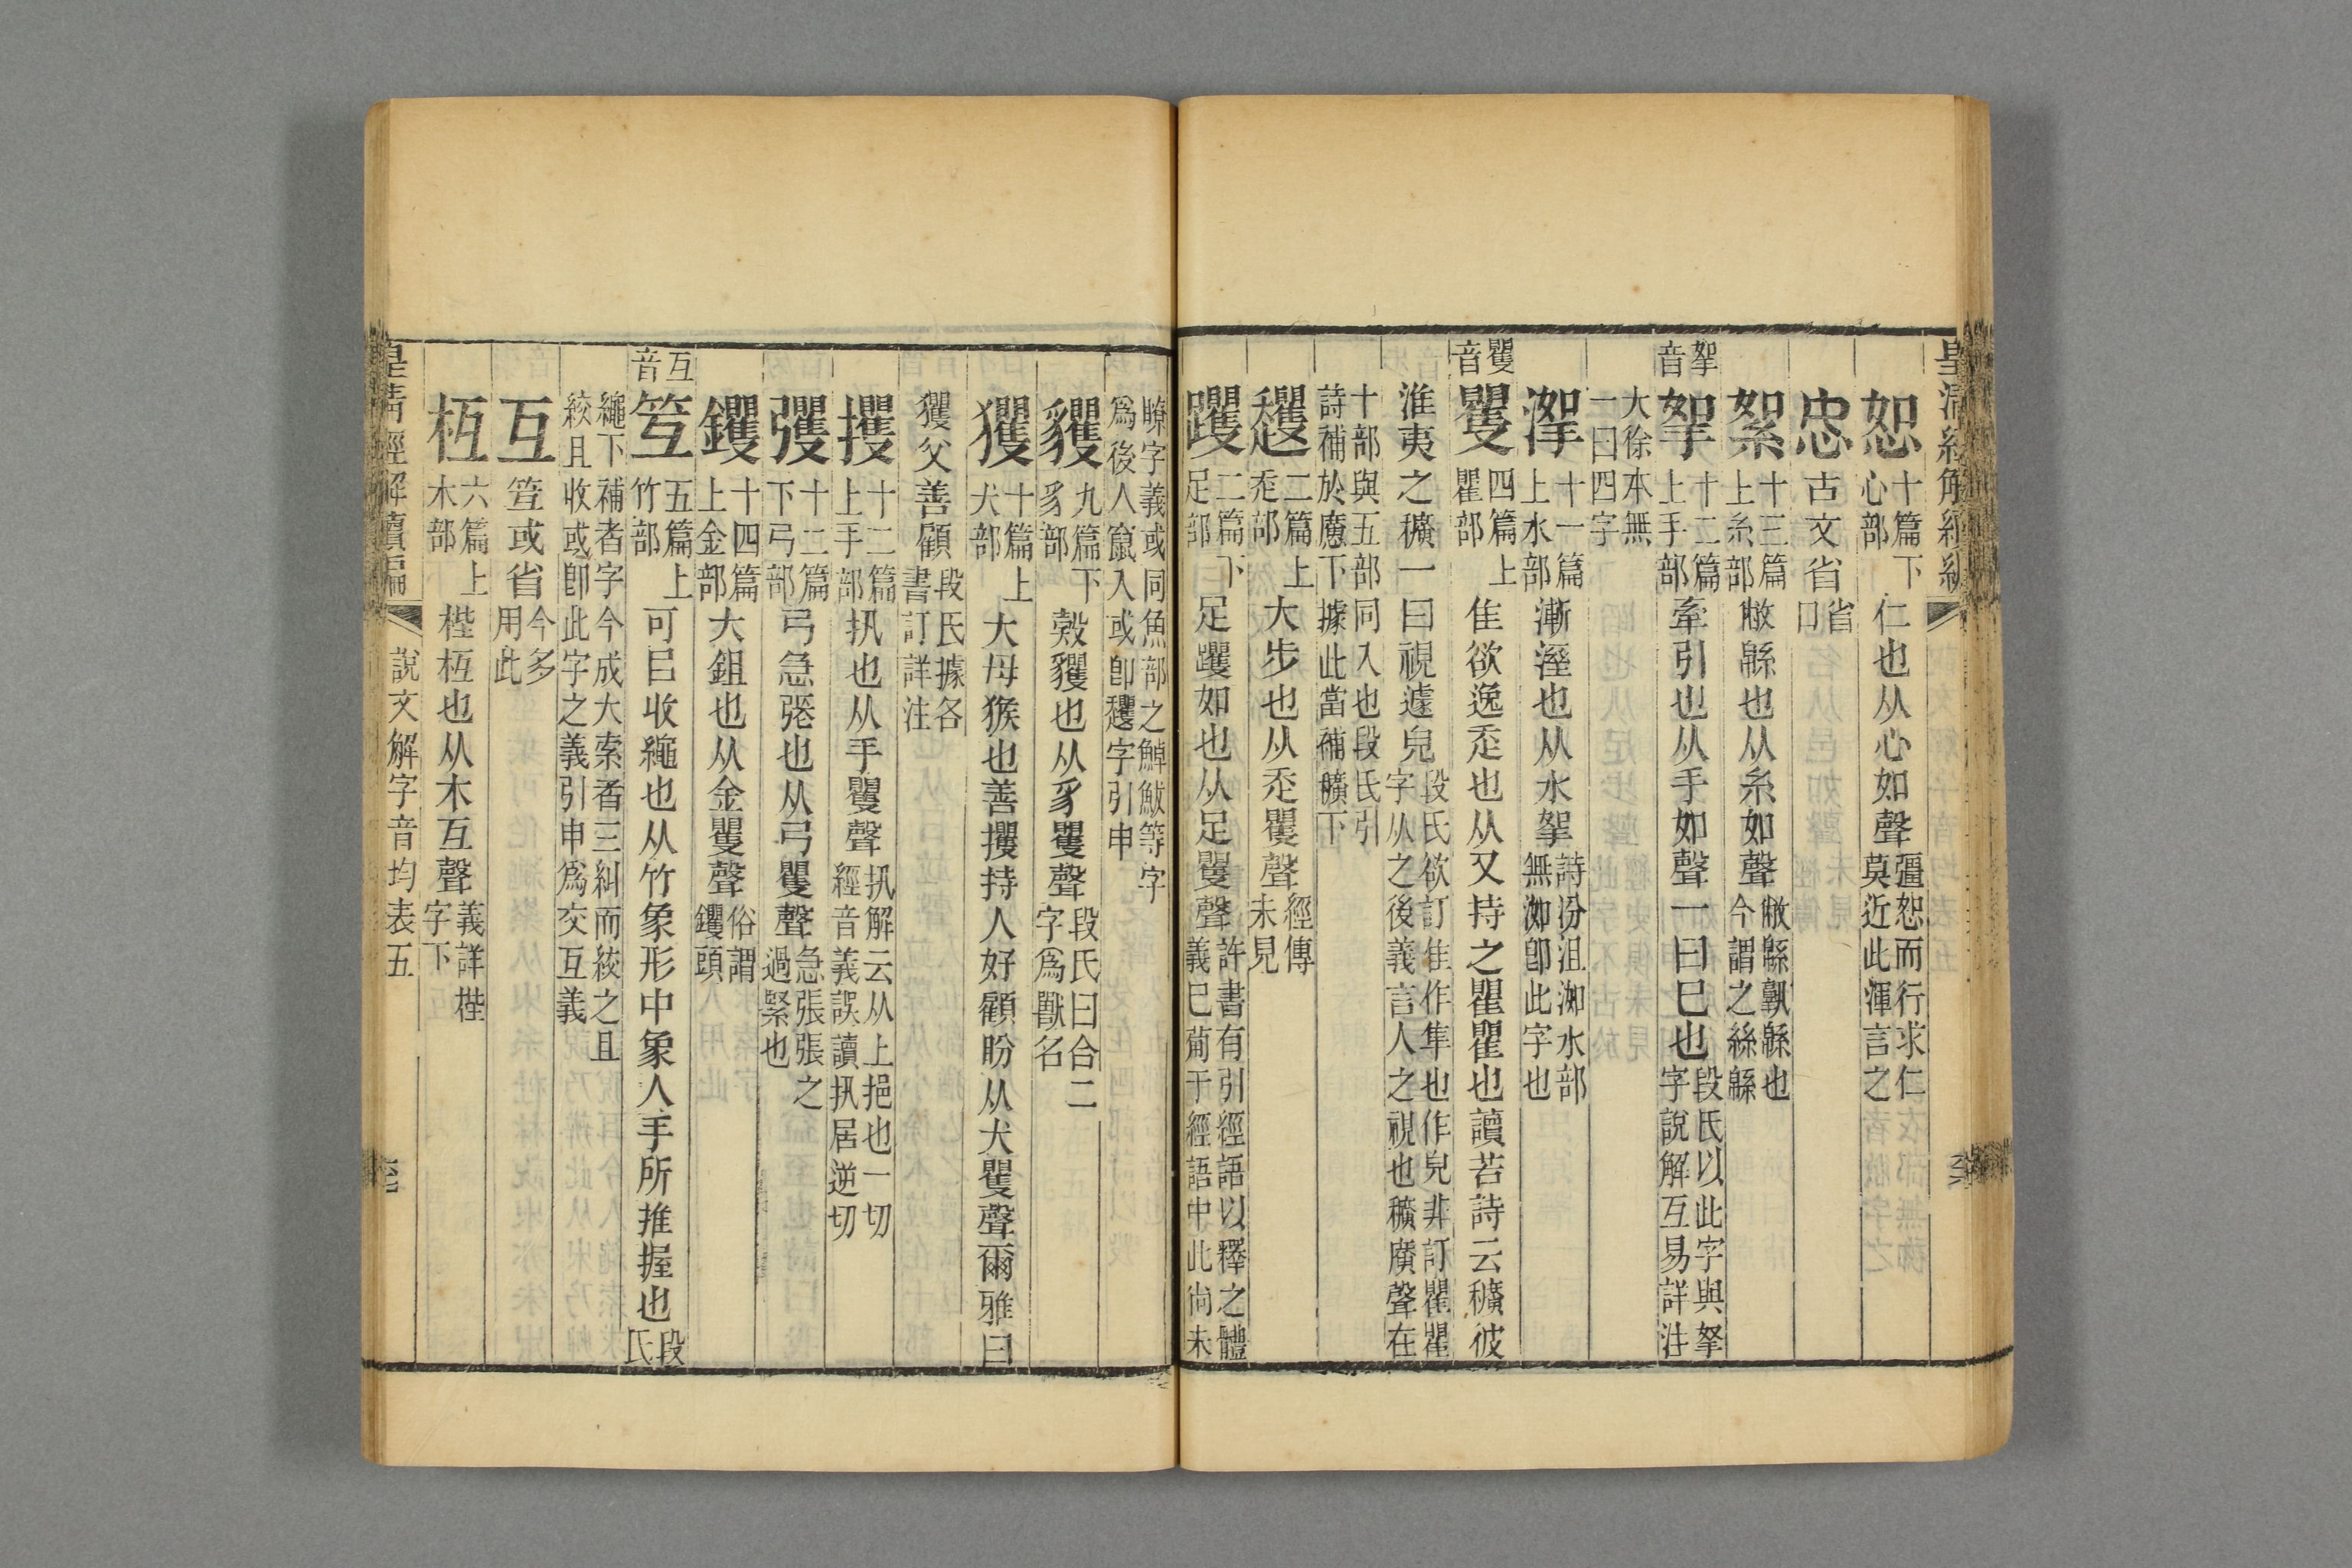 恕十篇下心部仁也从心如聲彊恕而行求仁莫近此渾言之
㣽古文省省口
絮十三篇上糸部敝緜也从糸如聲敝緜孰緜也今謂之絲緜
挐音
挐十二篇上手部牽引也从手如聲一曰巳也段氏以此字與拏字說解互易詳注
大徐本無一曰四字
㵖十一篇上水部漸溼也从水挐聲詩汾沮洳水部無洳卽此字也
矍音
矍四篇上瞿部隹欲逸走也从又持之瞿瞿也讀若詩云穬彼
淮夷之穬一曰視遽皃段氏欲訂隹作隼也作皃非訂瞿瞿字从之後義言人之視也穬廣聲在
十部與五部同入也段氏引詩補於應下據此當補穬下
趯二篇上走部大步也从走矍聲經傳未見
躩二篇下足部足躩如也从足矍聲許書有引經語以釋之體義巳葡于經語中此尙未
瞭字義或同魚部之鱍鮁等字爲後人竄入或卽趯字引申
貜九篇下豸部㺉貜也从豸矍聲段氏曰合二字爲獸名
玃十篇上犬部大母猴也善攫持人好顧盼从犬矍聲爾雅曰
玃父善顧段氏據各書訂詳注
攫十二篇上手部扟也从手矍聲扟解云从上挹也一切經音義誤讀扟居逆切
彏十二篇下弓部弓急張也从弓矍聲急張張之過緊也
钁十四篇上金部大鉏也从金矍聲俗謂钁頭
互音
笠五篇上竹部可㠯收繩也从竹象形中象人手所推握也段氏
繩下補者字今成大索者三糾而絞之且絞且收或卽此字之義引申爲交互義
互笠或省今多用此
枑六篇上木部梐枑也从木互聲義詳梐字下
說文解字音均表五